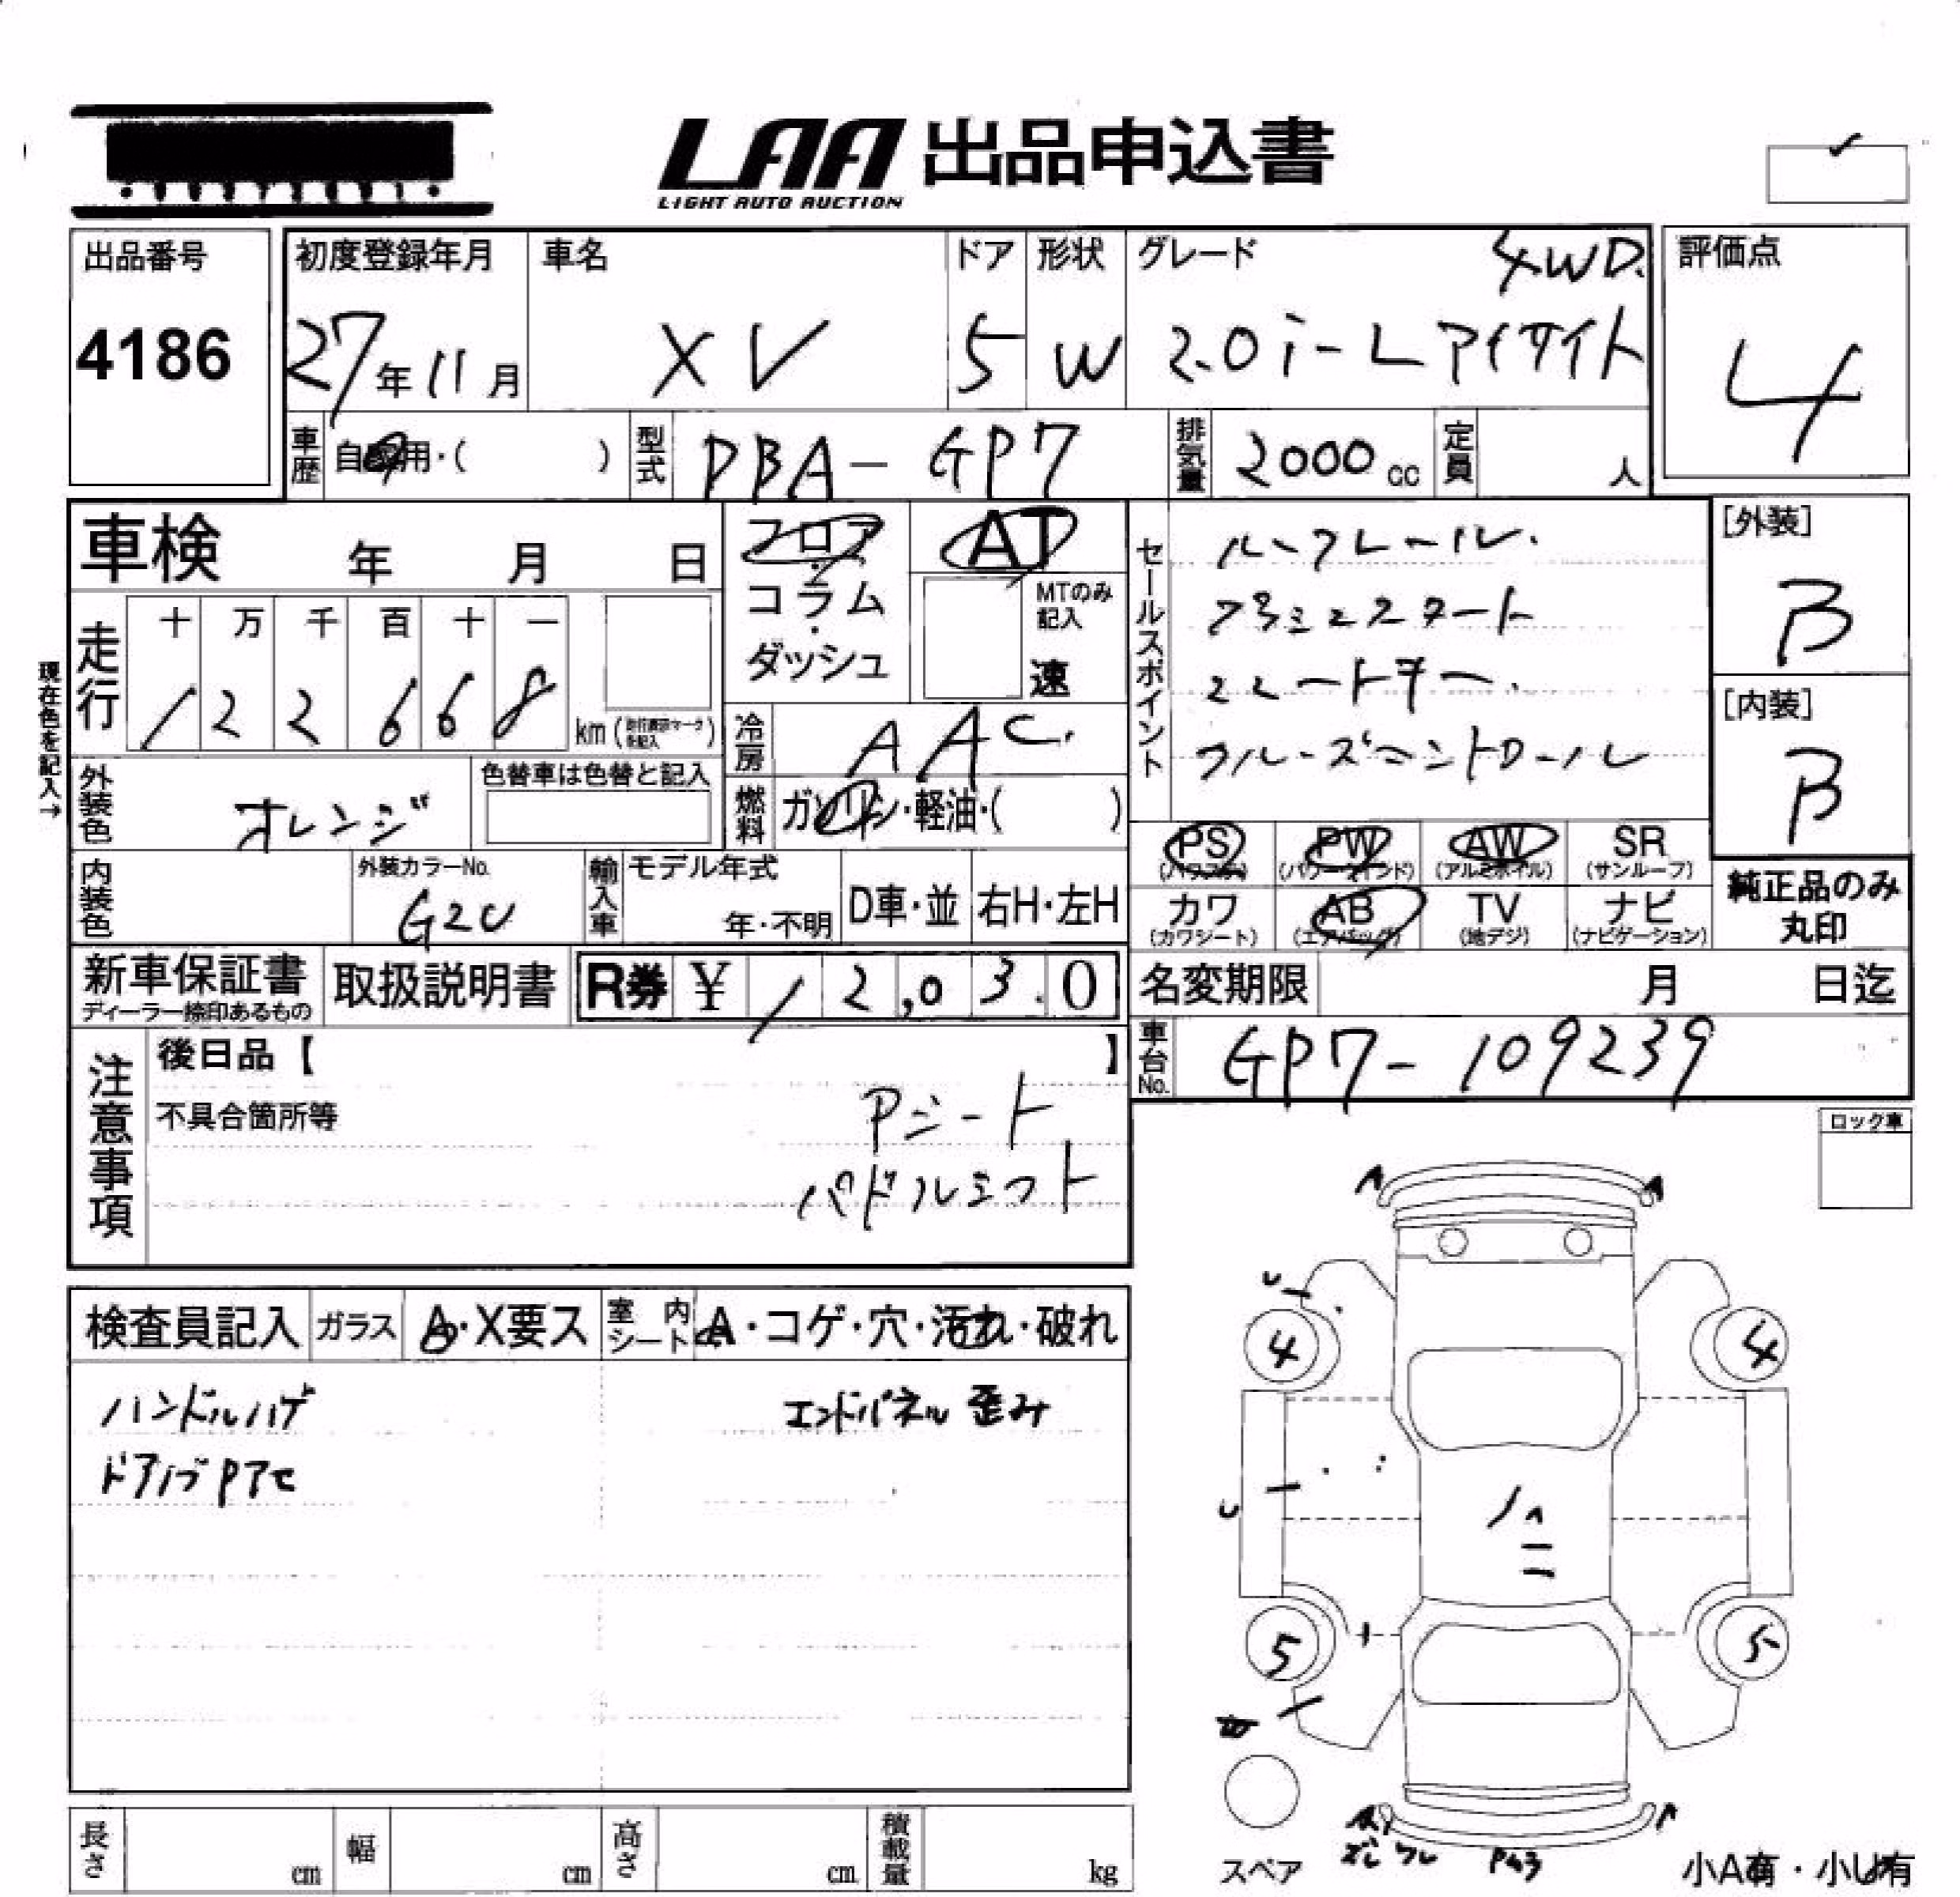 LAA 出品申込書
LIGHT AUTO AUCTION
出品番号
4186
初度登録年月
27年11月
車名
XV
ドア
5
形状
W
グレード
4WD.
2.0i-L アイサイト
評価点
4
車歴
自家用・( )
型式
DBA-GP7
排気量
2000cc
定員
人
車検 年 月 日
フロア・コラム・ダッシュ
AT
MTのみ記入
速
セールスポイント
ルーフレール.
プシュスタート
シートヒーター.
クルーズコントロール
[外装]
B
[内装]
B
現在色を記入→
走行
十 万 千 百 十 一
1 2 2 6 6 8
km
冷房
AAC.
外装色
オレンジ
色替車は色替と記入
燃料
ガソリン・軽油・( )
PS
(パワステ)
PW
(パワーウインド)
AW
(アルミホイル)
SR
(サンルーフ)
カワ
(カワシート)
AB
(エアバッグ)
TV
(地デジ)
ナビ
(ナビゲーション)
純正品のみ
丸印
内装色
外装カラーNo.
G2U
輸入車
モデル年式
年・不明
D車・並
右H・左H
新車保証書
ディーラー捺印あるもの
取扱説明書
R券 ¥ 12,030
名変期限 月 日迄
車台No.
GP7-109239
注意事項
後日品【 】
不具合箇所等
Pシート
パドルシフト
ロック車
検査員記入
ガラス
A・X要ス
室内シート
A・コゲ・穴・汚れ・破れ
ハンドルハゲ
エンドパネル歪み
ドアノブPアセ
A
A
U
4
4
U
A
5
5
スペア
A
ズレ ワレ
小A有・小U有
長さ cm
幅 cm
高さ cm
積載量 kg